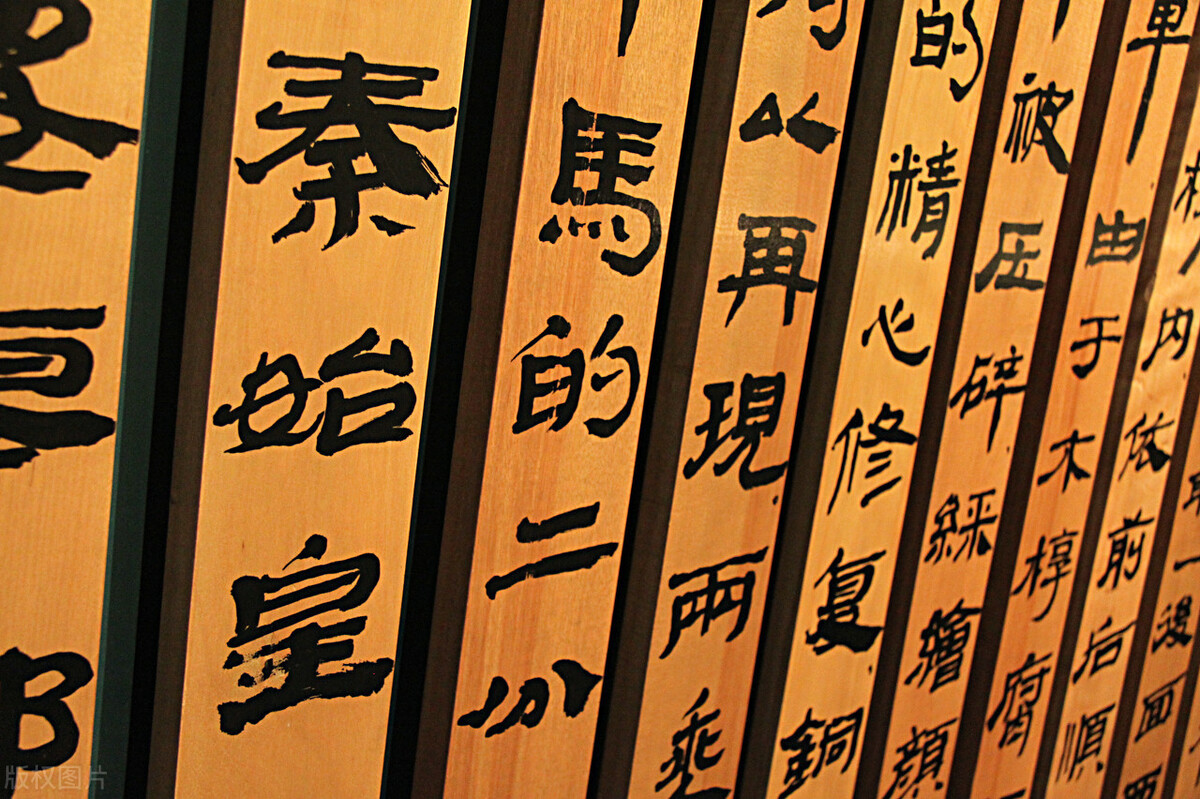 一
面
西
内依前后順
車由于木椁腐
被压碎綵繪顔
的精心修复銅
以再現兩乘
馬的二分
秦始皇